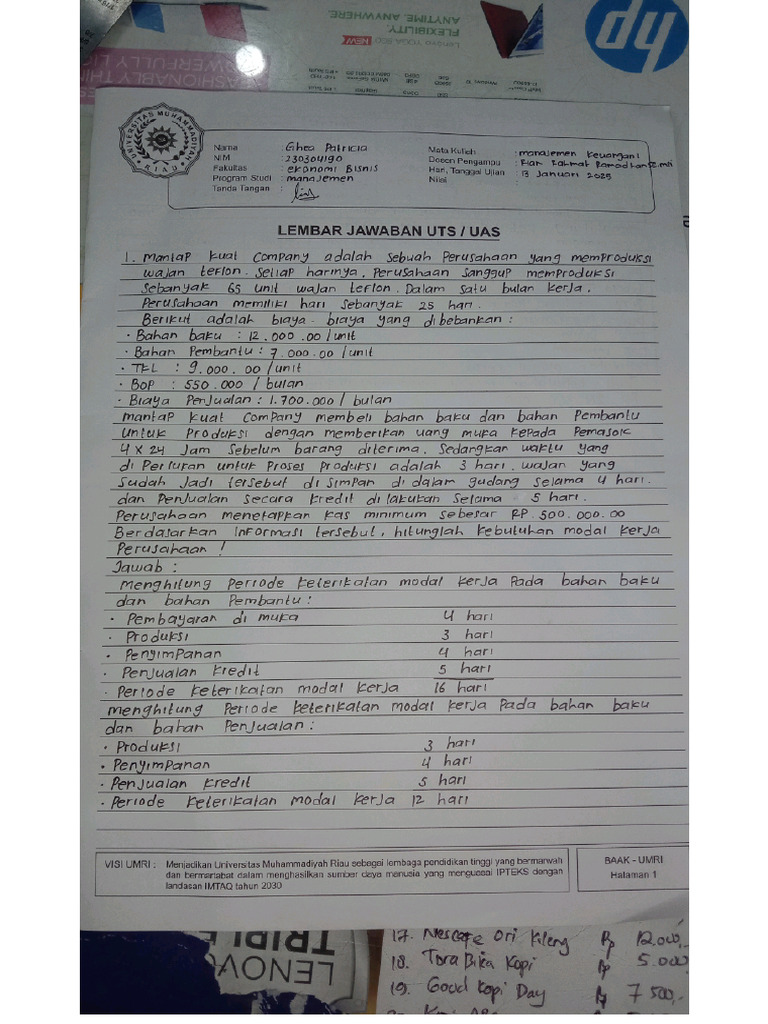 hp
ANYTIME. ANYWHERE.
FLEXIBILITY.
NEW
Lenovo YOGA
FASHIONABLY THIN
POWERFULLY
UNIVERSITAS MUHAMMADIYAH
RIAU
Nama : Ghea Patricia
NIM : 230304190
Fakultas : ekonomi Bisnis
Program Studi : manajemen
Tanda Tangan :
Mata Kuliah : manajemen Keuangan 1
Dosen Pengampu : Fian Rahmat Ramadhan
Hari, Tanggal Ujian : 13 Januari 2025
Nilai :
LEMBAR JAWABAN UTS / UAS
1. Mantap kuat Company adalah sebuah Perusahaan yang memproduksi
wajan teflon. Setiap harinya. Perusahaan sanggup memproduksi
Sebanyak 65 unit wajan teflon. Dalam satu bulan kerja.
Perusahaan memiliki hari sebanyak 25 hari.
Berikut adalah biaya-biaya yang dibebankan :
• Bahan baku : 12.000.00 / unit
• Bahan Pembantu : 7.000.00 / unit
• TKL : 9.000.00 / unit
• BOP : 550.000 / bulan
• Biaya Penjualan : 1.700.000 / bulan
mantap kuat Company membeli bahan baku dan bahan Pembantu
untuk Produksi dengan memberikan uang muka kepada Pemasok
4 x 24 Jam Sebelum barang diterima. Sedangkan waktu yang
di Perlukan untuk Proses Produksi adalah 3 hari. wajan yang
sudah Jadi tersebut di simpan di dalam gudang selama 4 hari.
dan Penjualan secara kredit dilakukan Selama 5 hari.
Perusahaan menetapkan kas minimum sebesar RP. 500.000.00
Berdasarkan informasi tersebut, hitunglah kebutuhan modal kerja
Perusahaan !
Jawab :
menghitung Periode keterikatan modal kerja Pada bahan baku
dan bahan Pembantu :
• Pembayaran di muka 4 hari
• Produksi 3 hari
• Penyimpanan 4 hari
• Penjualan Kredit 5 hari
• Periode keterikatan modal kerja 16 hari
menghitung Periode keterikatan modal kerja Pada bahan baku
dan bahan Penjualan :
• Produksi 3 hari
• Penyimpanan 4 hari
• Penjualan kredit 5 hari
• Periode keterikatan modal kerja 12 hari
VISI UMRI : Menjadikan Universitas Muhammadiyah Riau sebagai lembaga pendidikan tinggi yang bermarwah
dan bermartabat dalam menghasilkan sumber daya manusia yang menguasai IPTEKS dengan
landasan IMTAQ tahun 2030
BAAK - UMRI
Halaman 1
LENOVO
TRIPLE
17. Nescafe Ori Kleng Rp 12.000,-
18. Tora Bika Kopi Rp 5.000
19. Good Kopi Day Rp 7 500,-